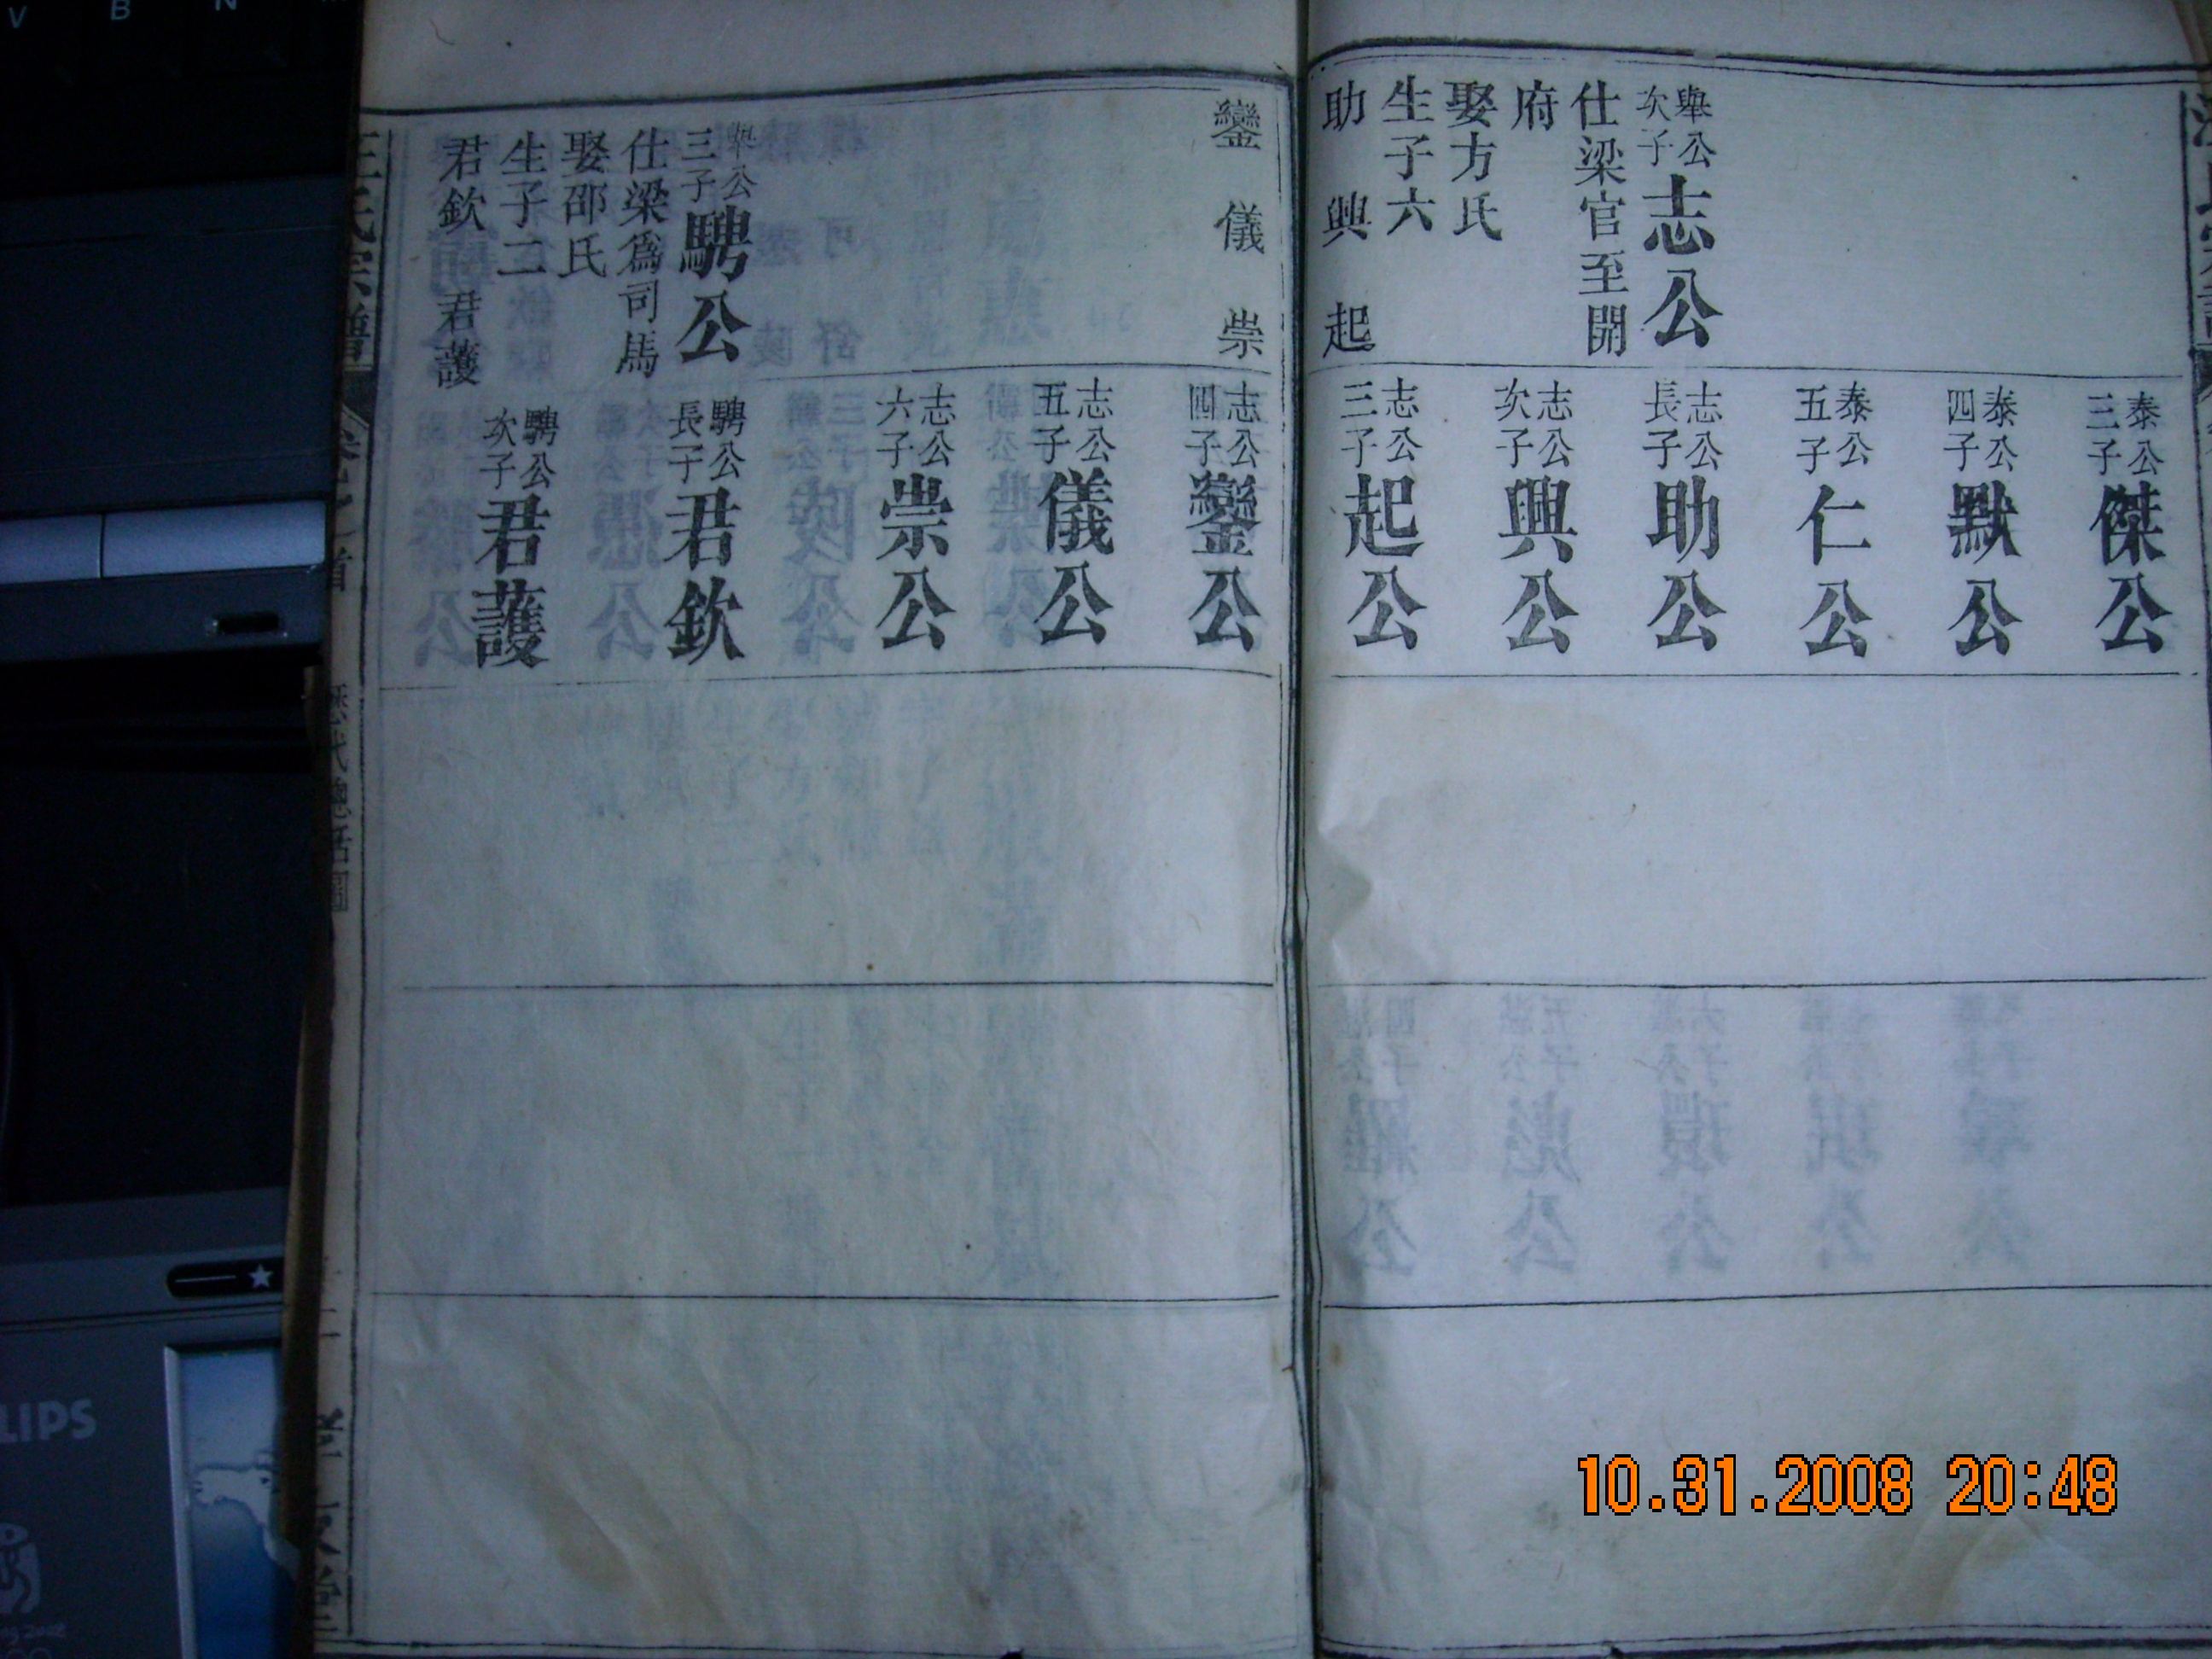 舉公次子志公
仕梁官至開
府
娶方氏
生子六
助 興 起
鑾 儀 崇
舉公三子騁公
仕梁為司馬
娶邵氏
生子二
君欽 君護
泰公三子傑公
泰公四子默公
泰公五子仁公
志公長子助公
志公次子興公
志公三子起公
志公四子鑾公
志公五子儀公
志公六子崇公
騁公長子君欽
騁公次子君護
汪氏宗譜
卷之首
歷代總括圖
V B N
LIPS
10.31.2008 20:48